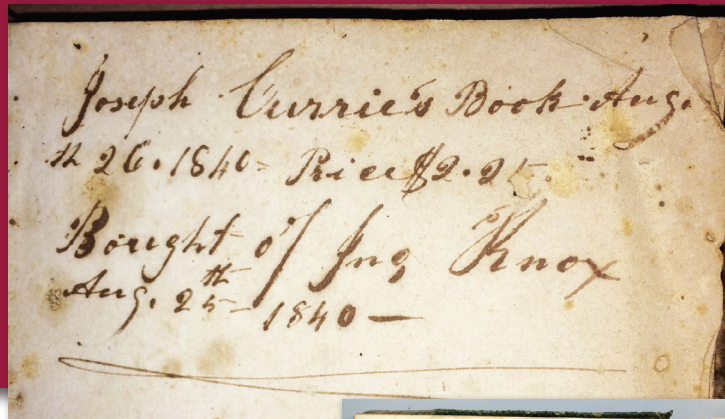 Joseph Currie's Book Aug.
th 26. 1840 - Price $2.25
Bought of Jno Knox
Aug. 25th 1840 —